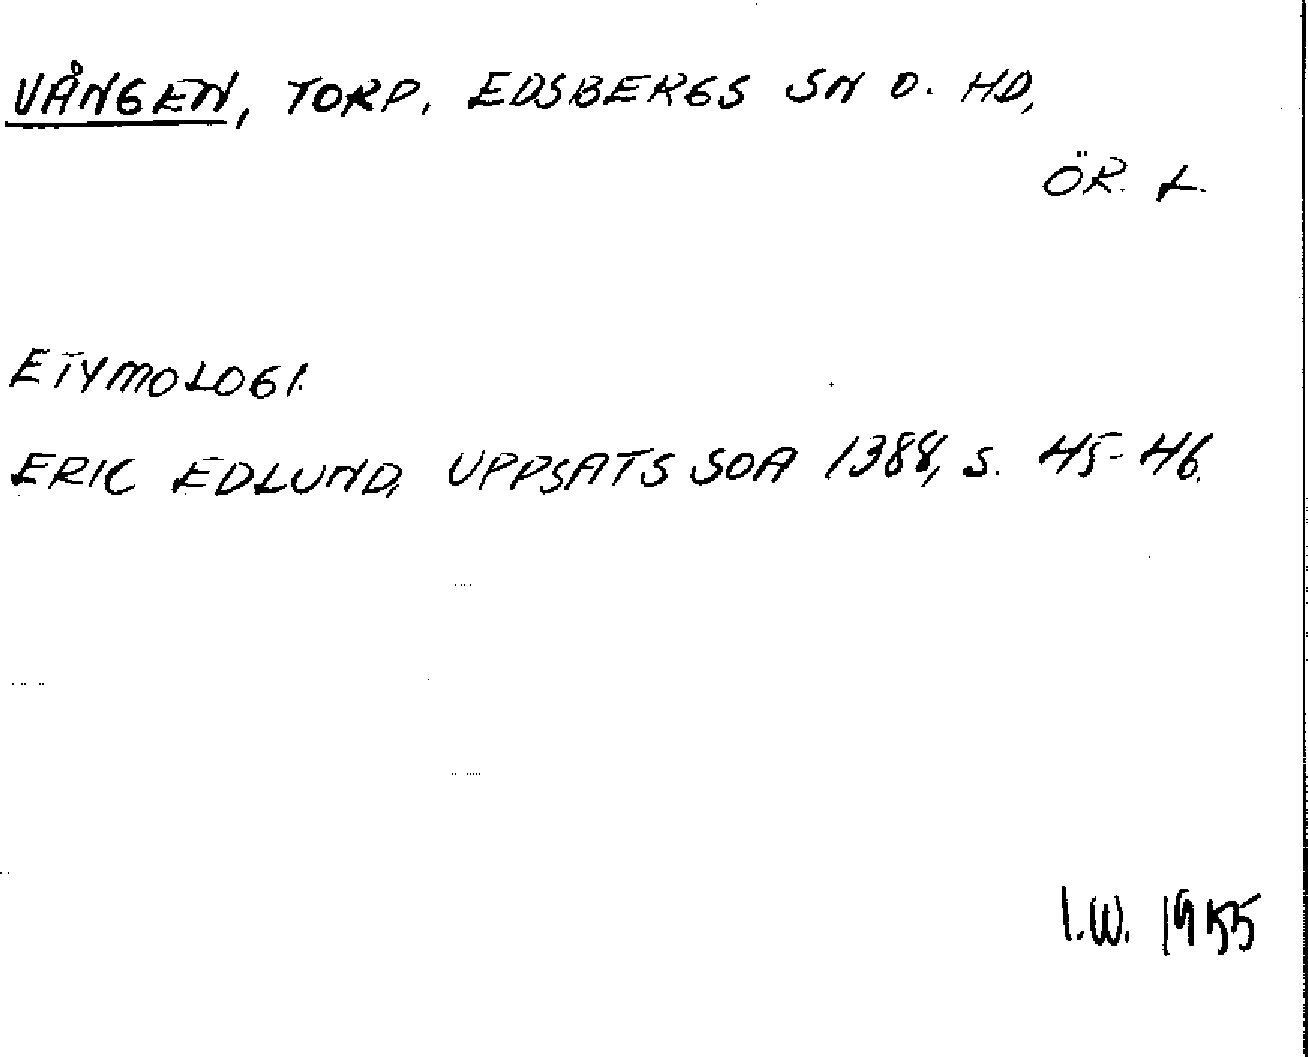 VÅNGEN, TORP, EDSBERGS SN O. HD,
ÖR. L.
ETYMOLOGI.
ERIC EDLUND, UPPSATS SOA 1388, S. 45-46.
I.W. 1955